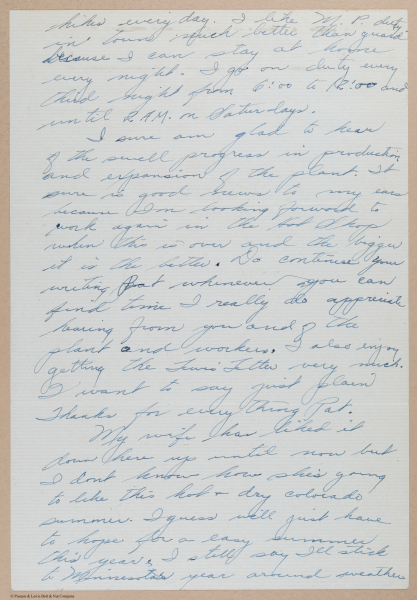 shiks every day. I like M.P. duty
in town much better than guard
because I can stay at house
every night. I go on duty every
third night from 6:00 to 12:00 and
until 2 A.M. on Saturdays.
I sure am glad to hear
of the swell progress in production
and expansion of the plant. It
sure is good news to my ears
because I'm looking forward to
work again in the Tool Shop
when this is over and the bigger
it is the better. Do continue your
writing Pat whenever you can
find time I really do appreciate
hearing from you and of the
plant and workers. I also enjoy
getting the Lewis Letter very much.
I want to say just plain
Thanks for every thing Pat.
My wife has liked it
down here up until now but
I dont know how she's going
to like this hot & dry colorado
summer. I guess we'll just have
to hope for a easy summer
this year. I still say I'll stick
to Minnesota's year around weather
© Popart & Lewis Bolt & Nut Company